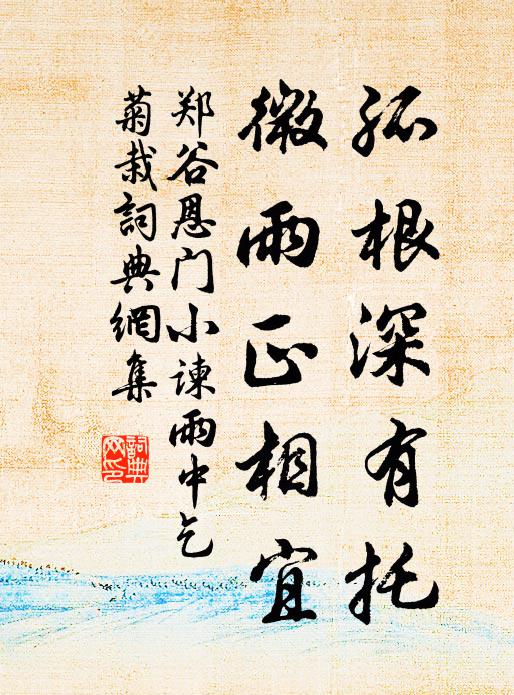 孤根深有托
微雨正相宜
郑谷恩门小谏雨中乞
菊栽詞典網集
詞典网印